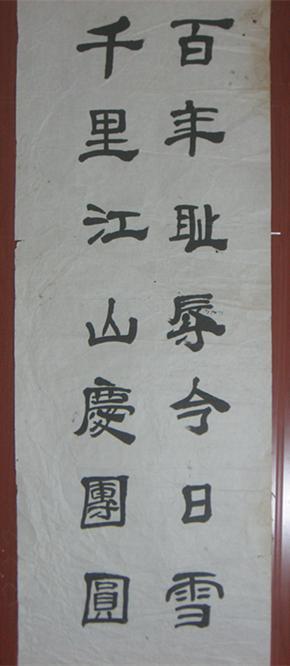 百年耻辱今日雪
千里江山慶團圓